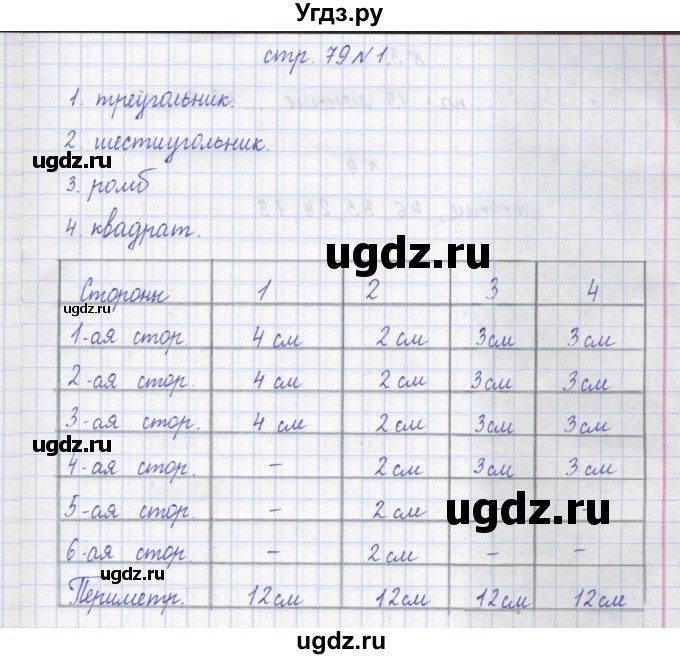 Угдз.ру
стр. 79 №1.
1. треугольник.
2. шестиугольник.
3. ромб
4. квадрат.
Стороны 1 2 3 4
1-ая стор. 4 см 2 см 3 см 3 см
2-ая стор. 4 см 2 см 3 см 3 см
3-ая стор. 4 см 2 см 3 см 3 см
4-ая стор. - 2 см 3 см 3 см
5-ая стор. - 2 см - -
6-ая стор. - 2 см - -
Периметр. 12 см 12 см 12 см 12 см
ugdz.ru
ugdz.ru
ugdz.ru
ugdz.ru
ugdz.ru
ugdz.ru
ugdz.ru
ugdz.ru